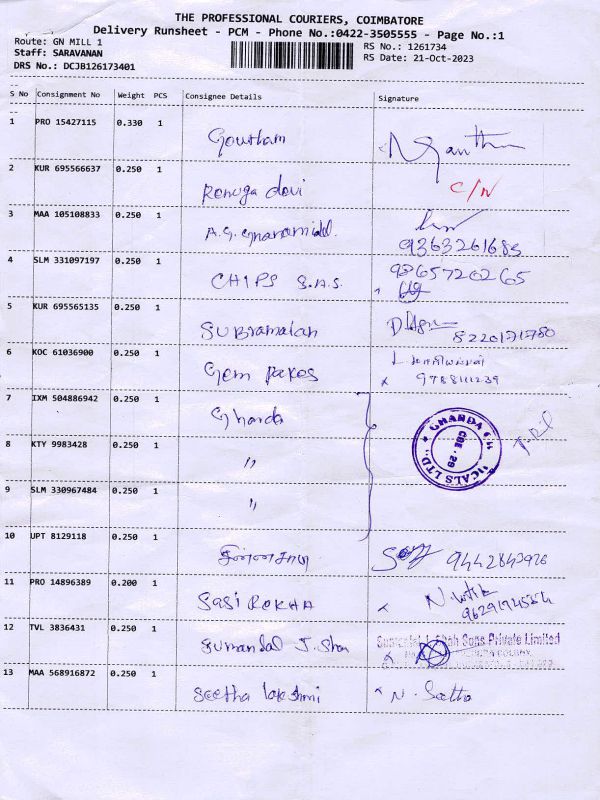 THE PROFESSIONAL COURIERS, COIMBATORE
Delivery Runsheet - PCM - Phone No.:0422-3505555 - Page No.:1
Route: GN MILL 1 RS No.: 1261734
Staff: SARAVANAN RS Date: 21-Oct-2023
DRS No.: DCJB126173401
S No Consignment No Weight PCS Consignee Details Signature
1 PRO 15427115 0.330 1 Goutham
2 KUR 695566637 0.250 1 Renuga devi C/N
3 MAA 105108833 0.250 1 A.G.
9363261685
4 SLM 331097197 0.250 1 CHIPS S.A.S. 9865720265
5 KUR 695565135 0.250 1 SUBramaian 8220171780
6 KOC 61036900 0.250 1 Gem Pakes
9788111239
7 IXM 504886942 0.250 1 Gharda
8 KTY 9983428 0.250 1 "
9 SLM 330967484 0.250 1 "
GHARDA CH ICALS LTD
CBE - 29
10 UPT 8129118 0.250 1 சின்னசாமி 9442843926
11 PRO 14896389 0.200 1 Sasi REKHA
12 TVL 3836431 0.250 1 Sumandal J. Shan Shah Sons Private Limited
13 MAA 568916872 0.250 1 Seetha lakshmi N. Seetha